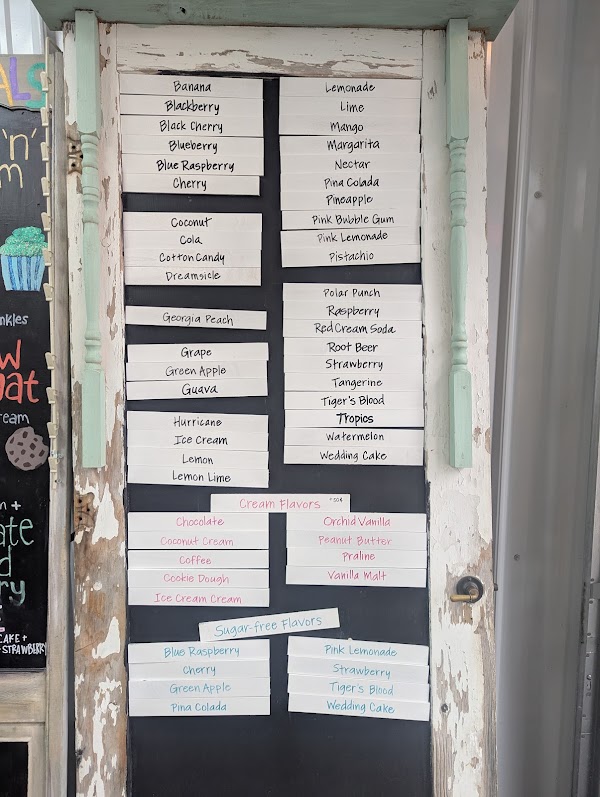 ALS
'n'
m
nkles
w
nat
ream
n +
ate
d
ry
CAKE +
STRAWBERRY
Banana
Blackberry
Black Cherry
Blueberry
Blue Raspberry
Cherry
Coconut
Cola
Cotton Candy
Dreamsicle
Georgia Peach
Grape
Green Apple
Guava
Hurricane
Ice Cream
Lemon
Lemon Lime
Lemonade
Lime
Mango
Margarita
Nectar
Pina Colada
Pineapple
Pink Bubble Gum
Pink Lemonade
Pistachio
Polar Punch
Raspberry
Red Cream Soda
Root Beer
Strawberry
Tangerine
Tiger's Blood
Tropics
Watermelon
Wedding Cake
Cream Flavors
Chocolate
Coconut Cream
Coffee
Cookie Dough
Ice Cream Cream
Orchid Vanilla
Peanut Butter
Praline
Vanilla Malt
Sugar-free Flavors
Blue Raspberry
Cherry
Green Apple
Pina Colada
Pink Lemonade
Strawberry
Tiger's Blood
Wedding Cake